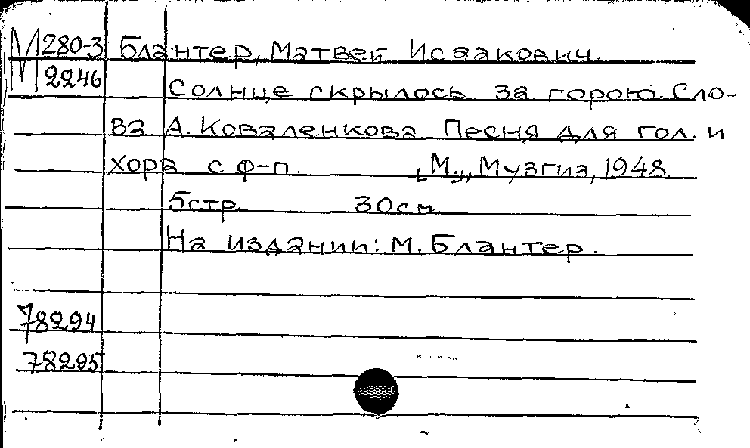 М 280-3 Блантер, Матвей Исаакович.
М 2246
Солнце скрылось за горою. Сло-
ва А. Коваленкова. Песня для гол. и
хора с ф-п. [М.], Музгиз, 1948.
5 стр. 30 см
На издании: М. Блантер.
78294
78295